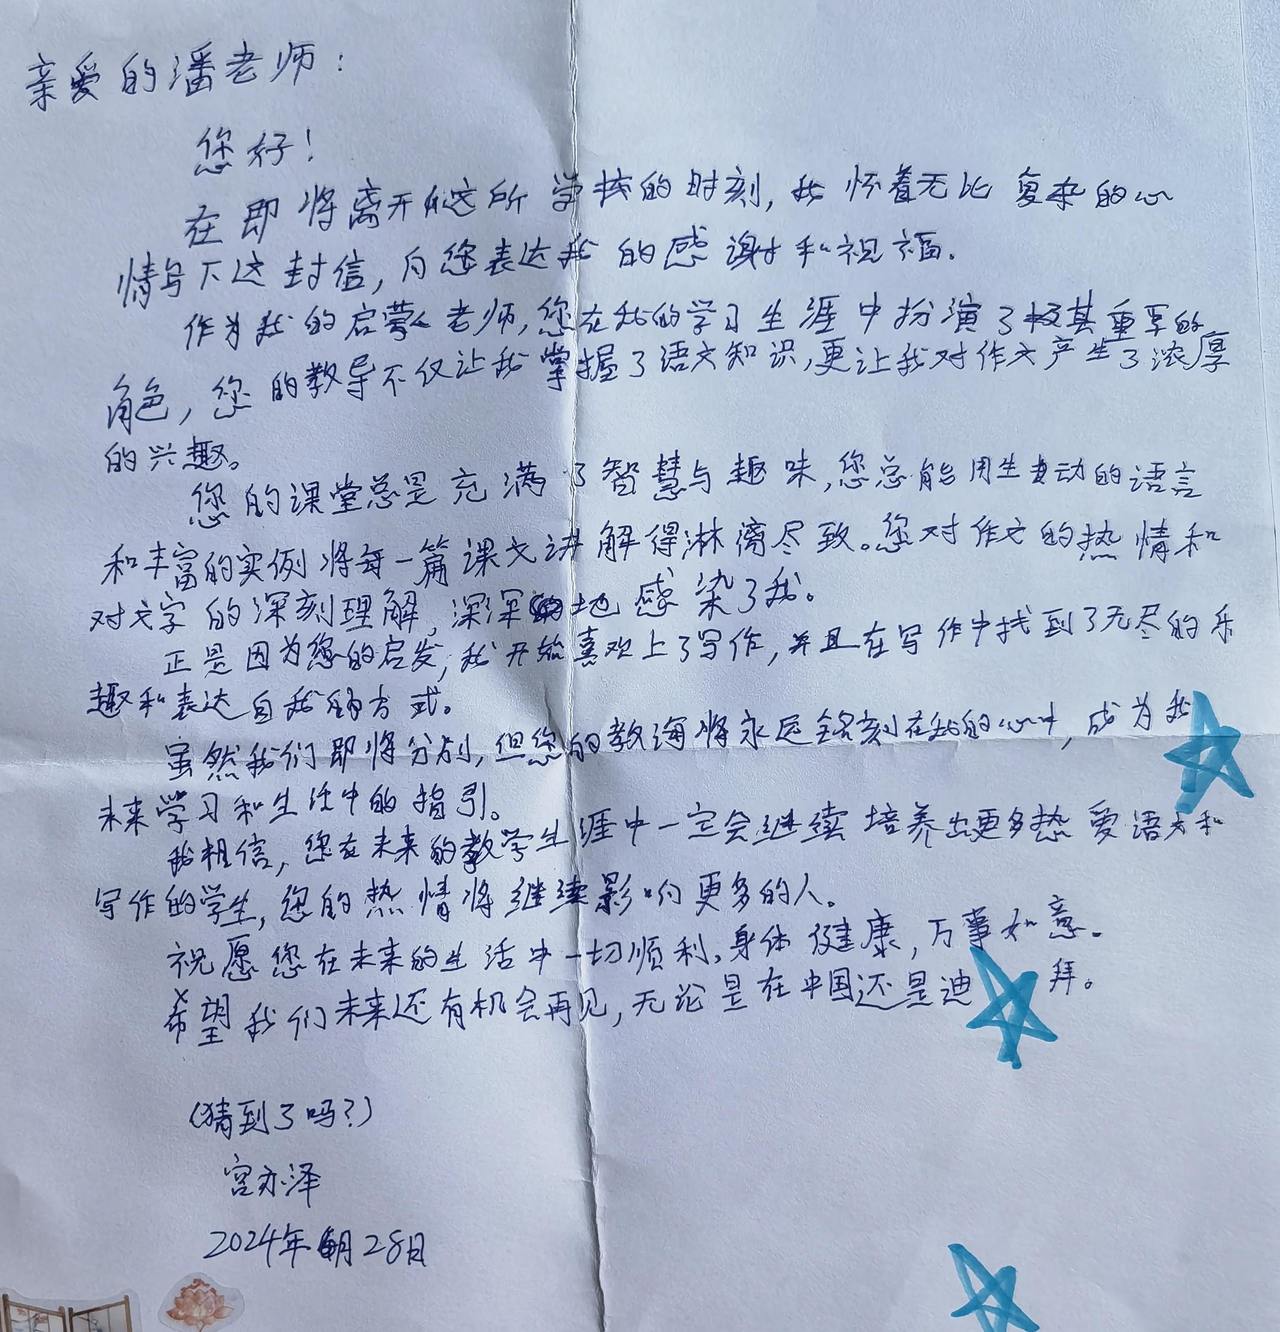 亲爱的潘老师：
您好！
在即将离开这所学校的时刻，我怀着无比复杂的心
情写下这封信，向您表达我的感谢和祝福。
作为我的启蒙老师，您在我的学习生涯中扮演了极其重要的
角色，您的教导不仅让我掌握了语文知识，更让我对作文产生了浓厚
的兴趣。
您的课堂总是充满了智慧与趣味，您总能用生动的语言
和丰富的实例将每一篇课文讲解得淋漓尽致。您对作文的热情和
对文字的深刻理解，深深地感染了我。
正是因为您的启发，我开始喜欢上了写作，并且在写作中找到了无尽的乐
趣和表达自我的方式。
虽然我们即将分别，但您的教诲将永远铭刻在我的心中，成为我
未来学习和生活中的指引。
我相信，您在未来的教学生涯中一定会继续培养出更多热爱语文和
写作的学生，您的热情将继续影响更多的人。
祝愿您在未来的生活中一切顺利，身体健康，万事如意。
希望我们未来还有机会再见，无论是在中国还是迪拜。
（猜到了吗？）
宫亦泽
2024年6月28日